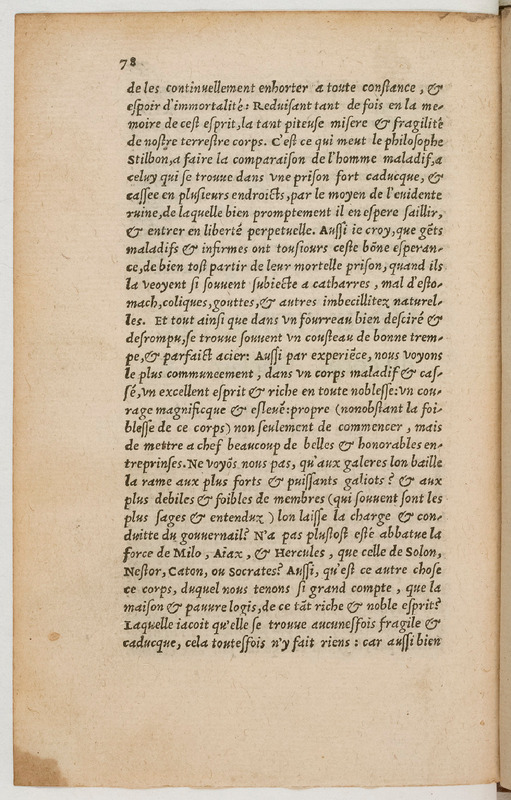 78
de les continuellement enhorter a toute constance, &
espoir d'immortalité: Reduisant tant de fois en la me-
moire de cest esprit, la tant piteuse misere & fragilité
de nostre terrestre corps. C'est ce qui meut le philosophe
Stilbon, a faire la comparaison de l'homme maladif, a
celuy qui se trouue dans vne prison fort caducque, &
cassee en plusieurs endroicts, par le moyen de l'euidente
ruine, de laquelle bien promptement il en espere saillir,
& entrer en liberté perpetuelle. Aussi ie croy, que gẽts
maladifs & infirmes ont tousiours ceste bõne esperan-
ce, de bien tost partir de leur mortelle prison, quand ils
la veoyent si souuent subiecte a catharres, mal d'esto-
mach, coliques, gouttes, & autres imbecillitez naturel-
les. Et tout ainsi que dans vn fourreau bien desciré &
desrompu, se trouue souuent vn cousteau de bonne trem-
pe, & parfaict acier: Aussi par experiẽce, nous voyons
le plus communeement, dans vn corps maladif & cas-
sé, vn excellent esprit & riche en toute noblesse: vn cou-
rage magnificque & esleuẽ: propre (nonobstant la foi-
blesse de ce corps) non seulement de commencer, mais
de mettre a chef beaucoup de belles & honorables en-
treprinses. Ne voyõs nous pas, qu'aux galeres lon baille
la rame aux plus forts & puissants galiots? & aux
plus debiles & foibles de membres (qui souuent sont les
plus sages & entenduz) lon laisse la charge & con-
duitte du gouuernail? N'a pas plustost esté abbatue la
force de Milo, Aiax, & Hercules, que celle de Solon,
Nestor, Caton, ou Socrates? Aussi, qu'est ce autre chose
ce corps, duquel nous tenons si grand compte, que la
maison & pauure logis, de ce tãt riche & noble esprit?
Laquelle iacoit qu'elle se trouue aucunesfois fragile &
caducque, cela toutesfois n'y fait riens: car aussi bien